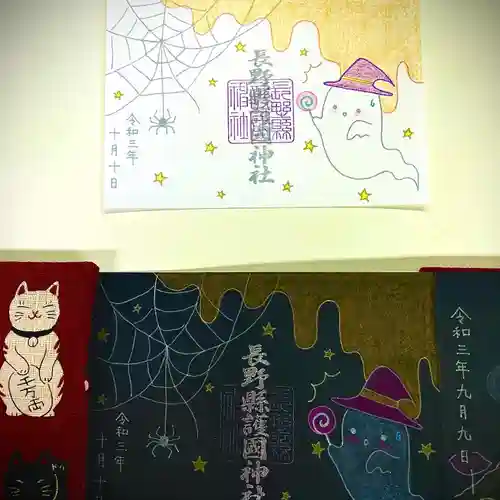 長野縣護國神社
令和三年
十月十日
令和三年九月九日
長野縣護國神社
令和三年
十月十